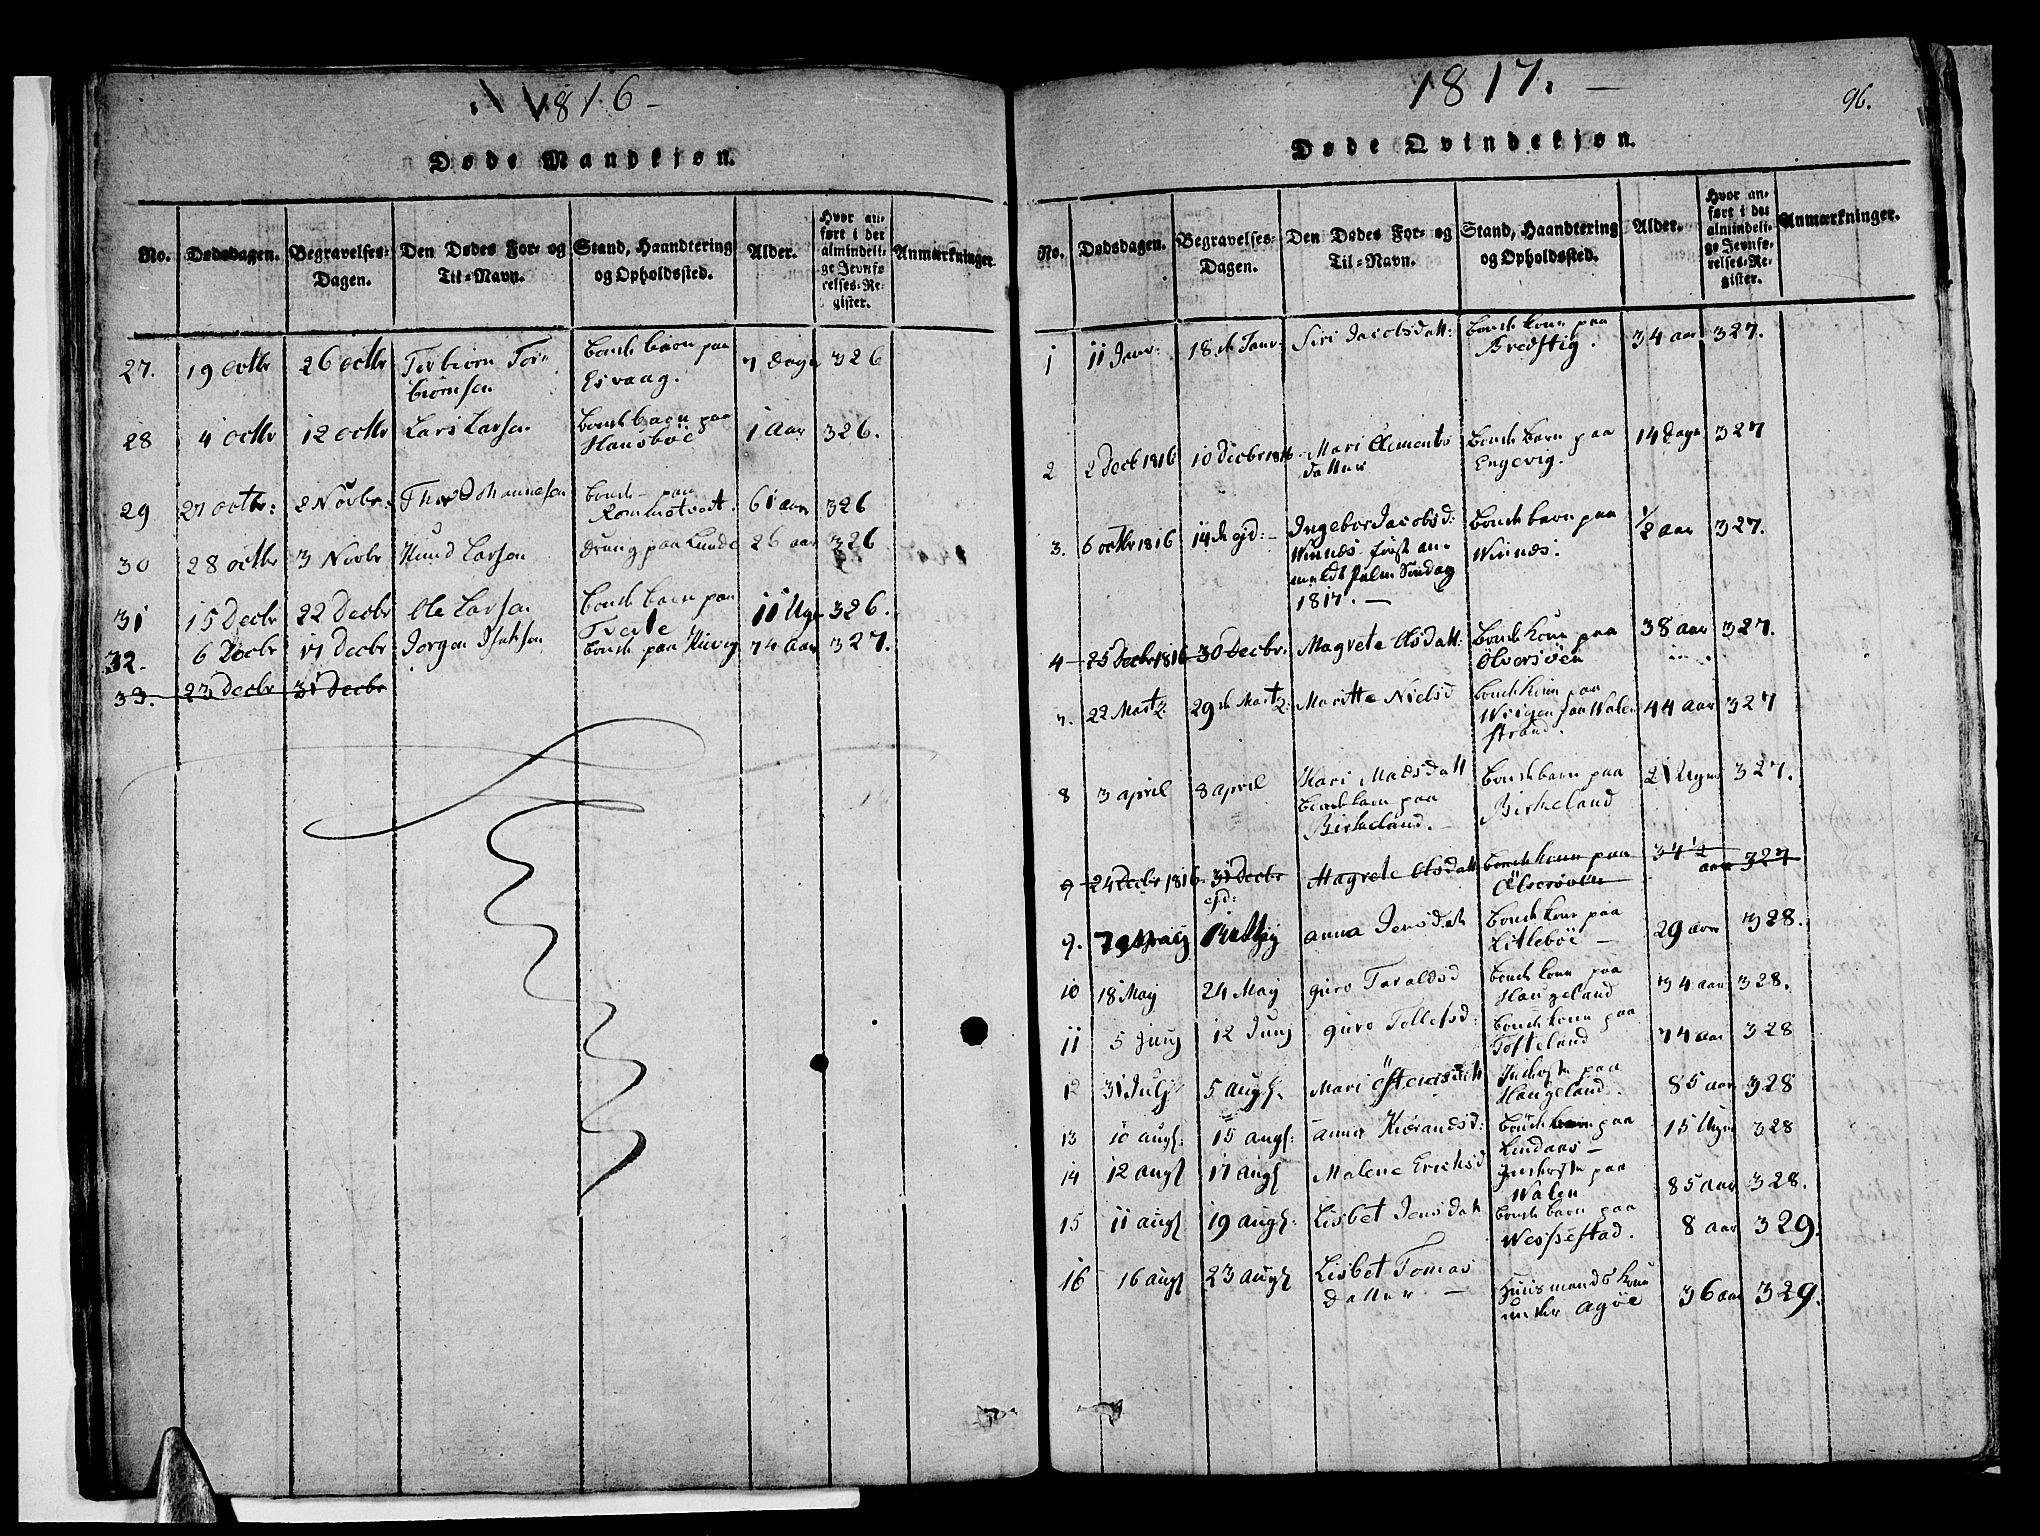 1816
Døde Mandkjøn.
No. Dødsdagen. Begravelses-Dagen. Den Dødes For- og Til-Navn. Stand, Haandtering og Opholdssted. Alder. Hvor anført i det almindelige Jevnførelses-Register. Anmærkninger
27. 19 octbr 26 octbr Torbiørn Torbiørnsen Bonde barn paa Esvaag. 7 Dage 326
28 4 octbr 12 octbr Lars Larsen Bonde barn paa Hausboe 1 Aar 326.
29 27 octbr: 2 Novbr. Johannesen Bonde paa 61 aar 326
30 28 octbr 3 Novbr Knud Larsen dreng paa Lunde 26 aar 326
31 15 Decbr 22 Decbr Ole Larsen Bonde barn paa Tveite 11 Uger 326.
32. 6 Decbr 17 Decbr Jørgen Isaksen Bonde paa 74 aar 327.
33. 23 Decbr 31 Decbr
1817.
96.
Døde Qvindekjøn.
No. Dødsdagen. Begravelses-Dagen. Den Dødes For- og Til-Navn. Stand, Haandtering og Opholdssted. Alder. Hvor anført i det almindelige Jevnførelses-Register. Anmærkninger.
1 11 Janv: 18 de Janv: Siri Jacobsdatt: Bonde kone paa Bredstig. 34 aar 327.
2 2 Decb 1816 10 Decbr 1816 Mari Clements datter Bonde barn paa Engevig. 14 Dage 327
3. 6 octbr 1816 14 de ejd: Ingebor Jacobsd: Winnes først anmeldt Palm Søndag 1817. Bonde barn paa Winnes. 1/2 aar 327.
4 25 Decbr 1816 30 Decbr. Magrete Olsdatt: Bonde kone paa Ølversøen 38 aar 327.
7. 22 Martz 29 de Martz Maritte Nielsd Bonde kone paa Walestrand. 44 aar 327
8 3 april 8 april Kari Madsdatt Bonde barn paa Birkeland. Bonde barn paa Birkeland 21 Uger 327.
9 24 Decbr 1816 31 Decbr ejd: Magrete Olsdatt Bonde kone paa Ølversøen 34 1/2 aar 327
9. Anna Jensdatt Bonde kone paa Litleboe 29 aar 328.
10 18 Maij 24 Maij Guro Taraldsd Bonde kone paa Haugeland 34 aar 328.
11 5 Junij 12 Junij Guro Tollefsd: Bonde kone paa Tofteland 74 aar 328
12 31 Julj 5 augs. Mari Østensdatt Inderste paa Haugeland. 85 aar 328
13 10 augs: 15 augs: anna Bonde barn paa Lindaas 15 Uger 328
14 12 augs 17 augs Malene Erichsd Inderste paa Walen 85 aar 328.
15 11 augs 19 augs: Lisbet Jensdatt Bonde barn paa Wespestad. 8 aar 329.
16 16 augs 23 augs Lisbet Tomas Datter Huusmands kone under Agøe 36 aar 329.